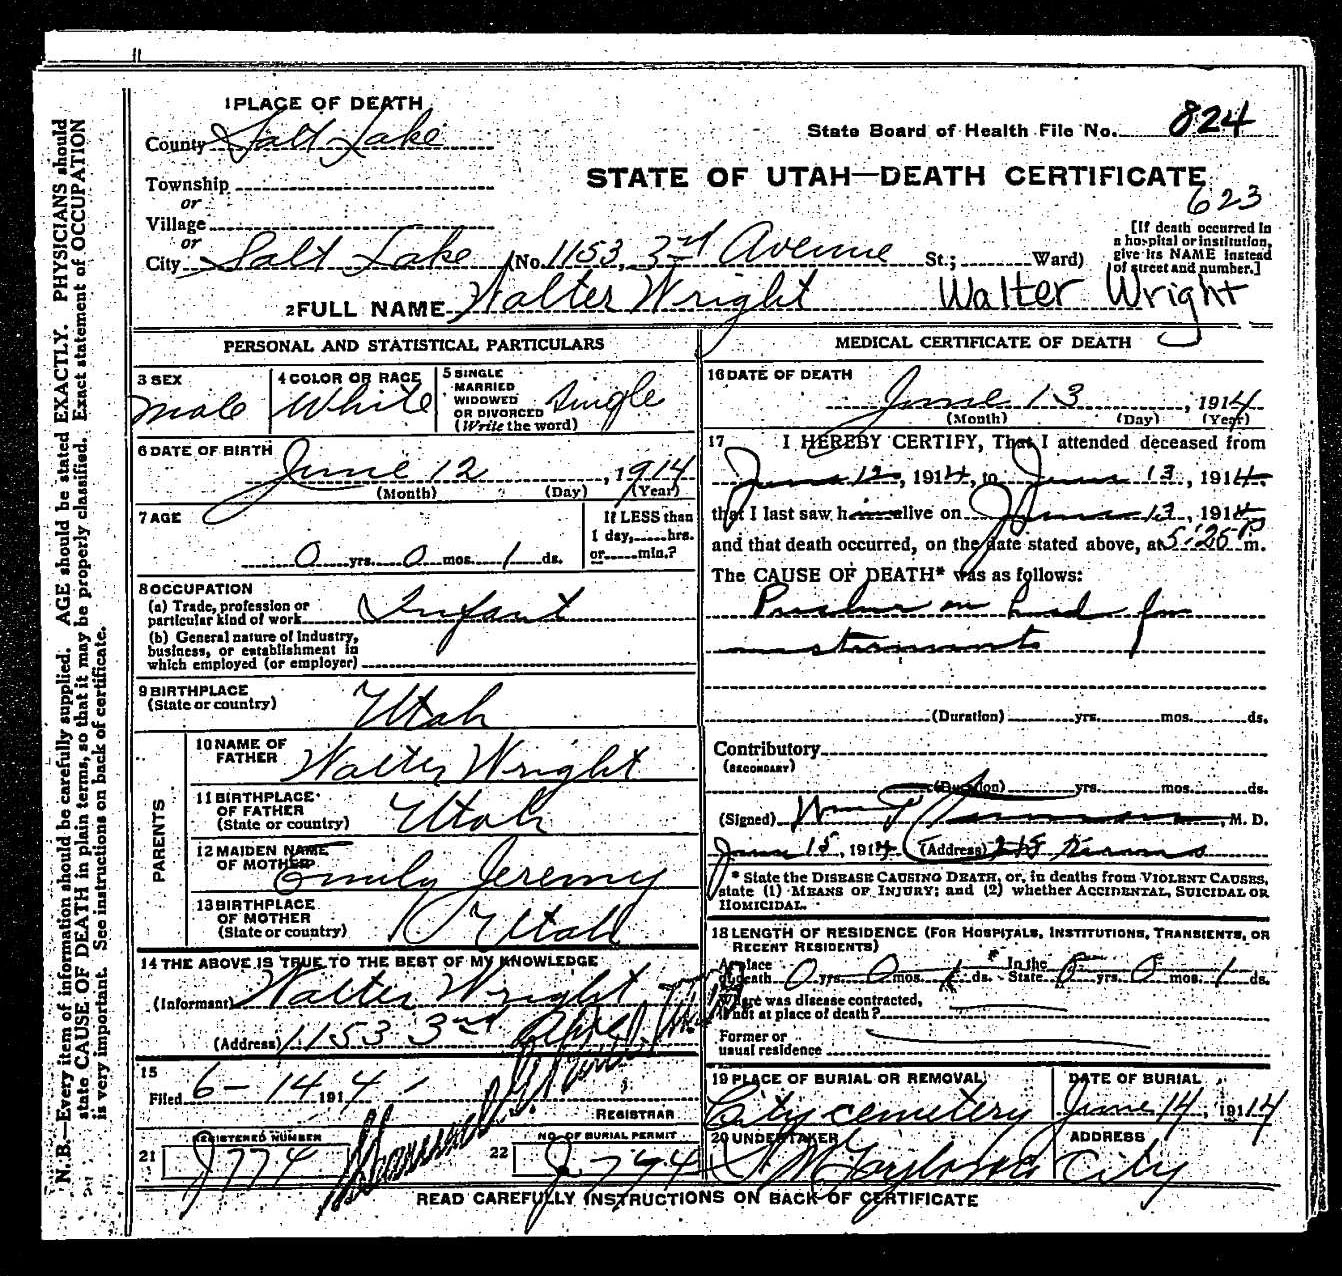 1 PLACE OF DEATH
County Salt Lake
State Board of Health File No. 824
Township
or
STATE OF UTAH—DEATH CERTIFICATE
623
Village
or
City Salt Lake (No. 1153, 3rd Avenue St.; Ward)
[If death occurred in a hospital or institution, give its NAME instead of street and number.]
2 FULL NAME Walter Wright Walter Wright
PERSONAL AND STATISTICAL PARTICULARS
3 SEX
male
4 COLOR OR RACE
White
5 SINGLE MARRIED WIDOWED OR DIVORCED (Write the word)
Single
6 DATE OF BIRTH
June 12, 1914
(Month) (Day) (Year)
7 AGE
0 yrs. 0 mos. 1 ds.
If LESS than 1 day, hrs. or min.?
8 OCCUPATION
(a) Trade, profession or particular kind of work Infant
(b) General nature of Industry, business, or establishment in which employed (or employer)
9 BIRTHPLACE
(State or country)
Utah
PARENTS
10 NAME OF FATHER
Walter Wright
11 BIRTHPLACE OF FATHER (State or country)
Utah
12 MAIDEN NAME OF MOTHER
Emily Jeremy
13 BIRTHPLACE OF MOTHER (State or country)
Utah
14 THE ABOVE IS TRUE TO THE BEST OF MY KNOWLEDGE
(Informant) Walter Wright
(Address) 1153 3rd Ave
15
Filed 6-14 1914
REGISTRAR
REGISTERED NUMBER
21 J774
NO. OF BURIAL PERMIT
22 J794
MEDICAL CERTIFICATE OF DEATH
16 DATE OF DEATH
June 13, 1914
(Month) (Day) (Year)
17 I HEREBY CERTIFY, That I attended deceased from
June 12, 1914, to June 13, 1914.
that I last saw him alive on June 13, 1914
and that death occurred, on the date stated above, at 5:25 P m.
The CAUSE OF DEATH* was as follows:
on head
(Duration) yrs. mos. ds.
Contributory
(SECONDARY)
(Duration) yrs. mos. ds.
(Signed) Wm, M. D.
June 15, 1914 (Address)
* State the DISEASE CAUSING DEATH, or, in deaths from VIOLENT CAUSES, state (1) MEANS OF INJURY; and (2) whether ACCIDENTAL, SUICIDAL OR HOMICIDAL.
18 LENGTH OF RESIDENCE (FOR HOSPITALS, INSTITUTIONS, TRANSIENTS, OR RECENT RESIDENTS)
At place of death 0 yrs. 0 mos. 1 ds. In the State 0 yrs. 0 mos. 1 ds.
Where was disease contracted, if not at place of death?
Former or usual residence
19 PLACE OF BURIAL OR REMOVAL
City cemetery
DATE OF BURIAL
June 14, 1914
20 UNDERTAKER
ADDRESS
City
READ CAREFULLY INSTRUCTIONS ON BACK OF CERTIFICATE
N. B.—Every item of information should be carefully supplied. AGE should be stated EXACTLY. PHYSICIANS should
state CAUSE OF DEATH in plain terms, so that it may be properly classified. Exact statement of OCCUPATION
is very important. See instructions on back of certificate.